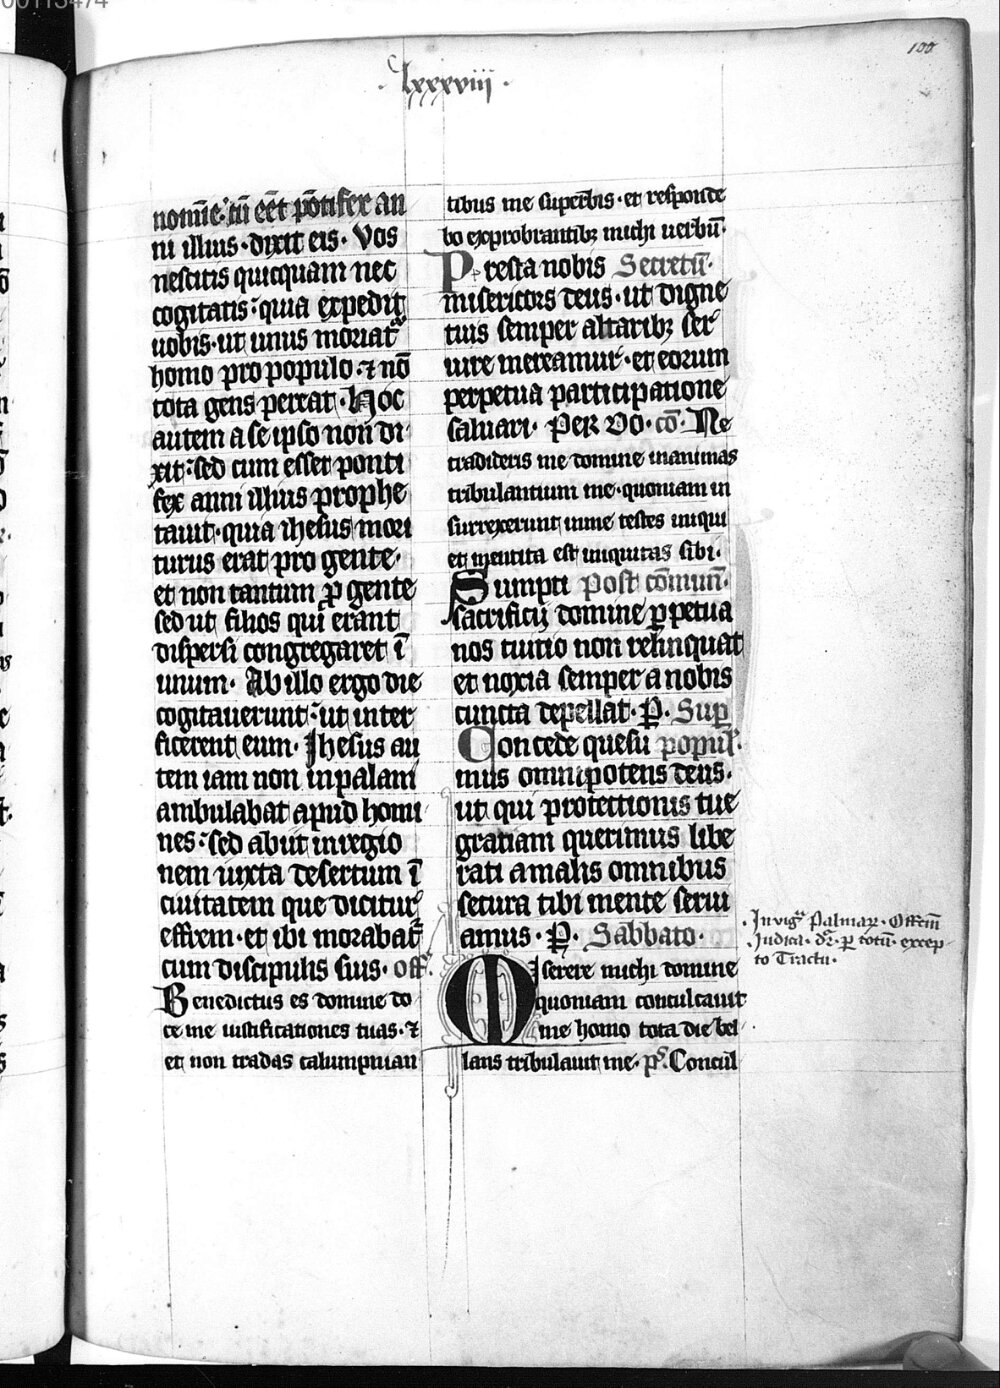 00113474
100
· lxxxviii ·
nomīe· cū eēt pōtifex an
ni illius· dixit eis· Vos
nescitis quicquam nec
cogitatis: quia expedit
uobis· ut unus moriat᷑
homo pro populo· ⁊ nō
tota gens pereat· Hoc
autem a se ipso non di
xit: sed cum esset ponti
fex anni illius prophe
tauit· quia ihesus mori
turus erat pro gente·
et non tantum ꝓ gente
sed ut filios qui erant
dispersi congregaret ī
unum· Ab illo ergo die
cogitauerunt: ut inter
ficerent eum· Ihesus au
tem iam non in palam
ambulabat apud homi
nes: sed abiit in regio
nem iuxta desertum ī
ciuitatem que dicitur
effrem· et ibi morabat᷑
cum discipulis suis· off̄·
Benedictus es domine do
ce me iustificationes tuas· ⁊
et non tradas calumpnian
tibus me superbis· et responde
bo exprobrantibꝫ michi uerbū·
Presta nobis Secretū·
misericors deus· ut digne
tuis semper altaribꝫ ser
uire mereamur· et eorum
perpetua participatione
saluari· Per do· cō· Ne
tradideris me domine in animas
tribulantium me· quoniam in
surrexerunt in me testes iniqui
et mentita est iniquitas sibi·
Sumpti Post cōmun̄·
sacrificij domine ꝑpetua
nos tuitio non relinquat
et noxia semper a nobis
cuncta depellat· P̱· Sup̱
Concede quesu populū·
mus omnipotens deus·
ut qui protectionis tue
gratiam querimus libe
rati a malis omnibus
secura tibi mente serui
amus· P̱· Sabbato·
Miserere michi domine
quoniam conculcauit
me homo tota die bel
lans tribulauit me· ps̄· Concul
· In vigᷓ Palmaꝝ· Offem̄
Iudica· dr̄· ꝑ totū· excep-
to Tractu·